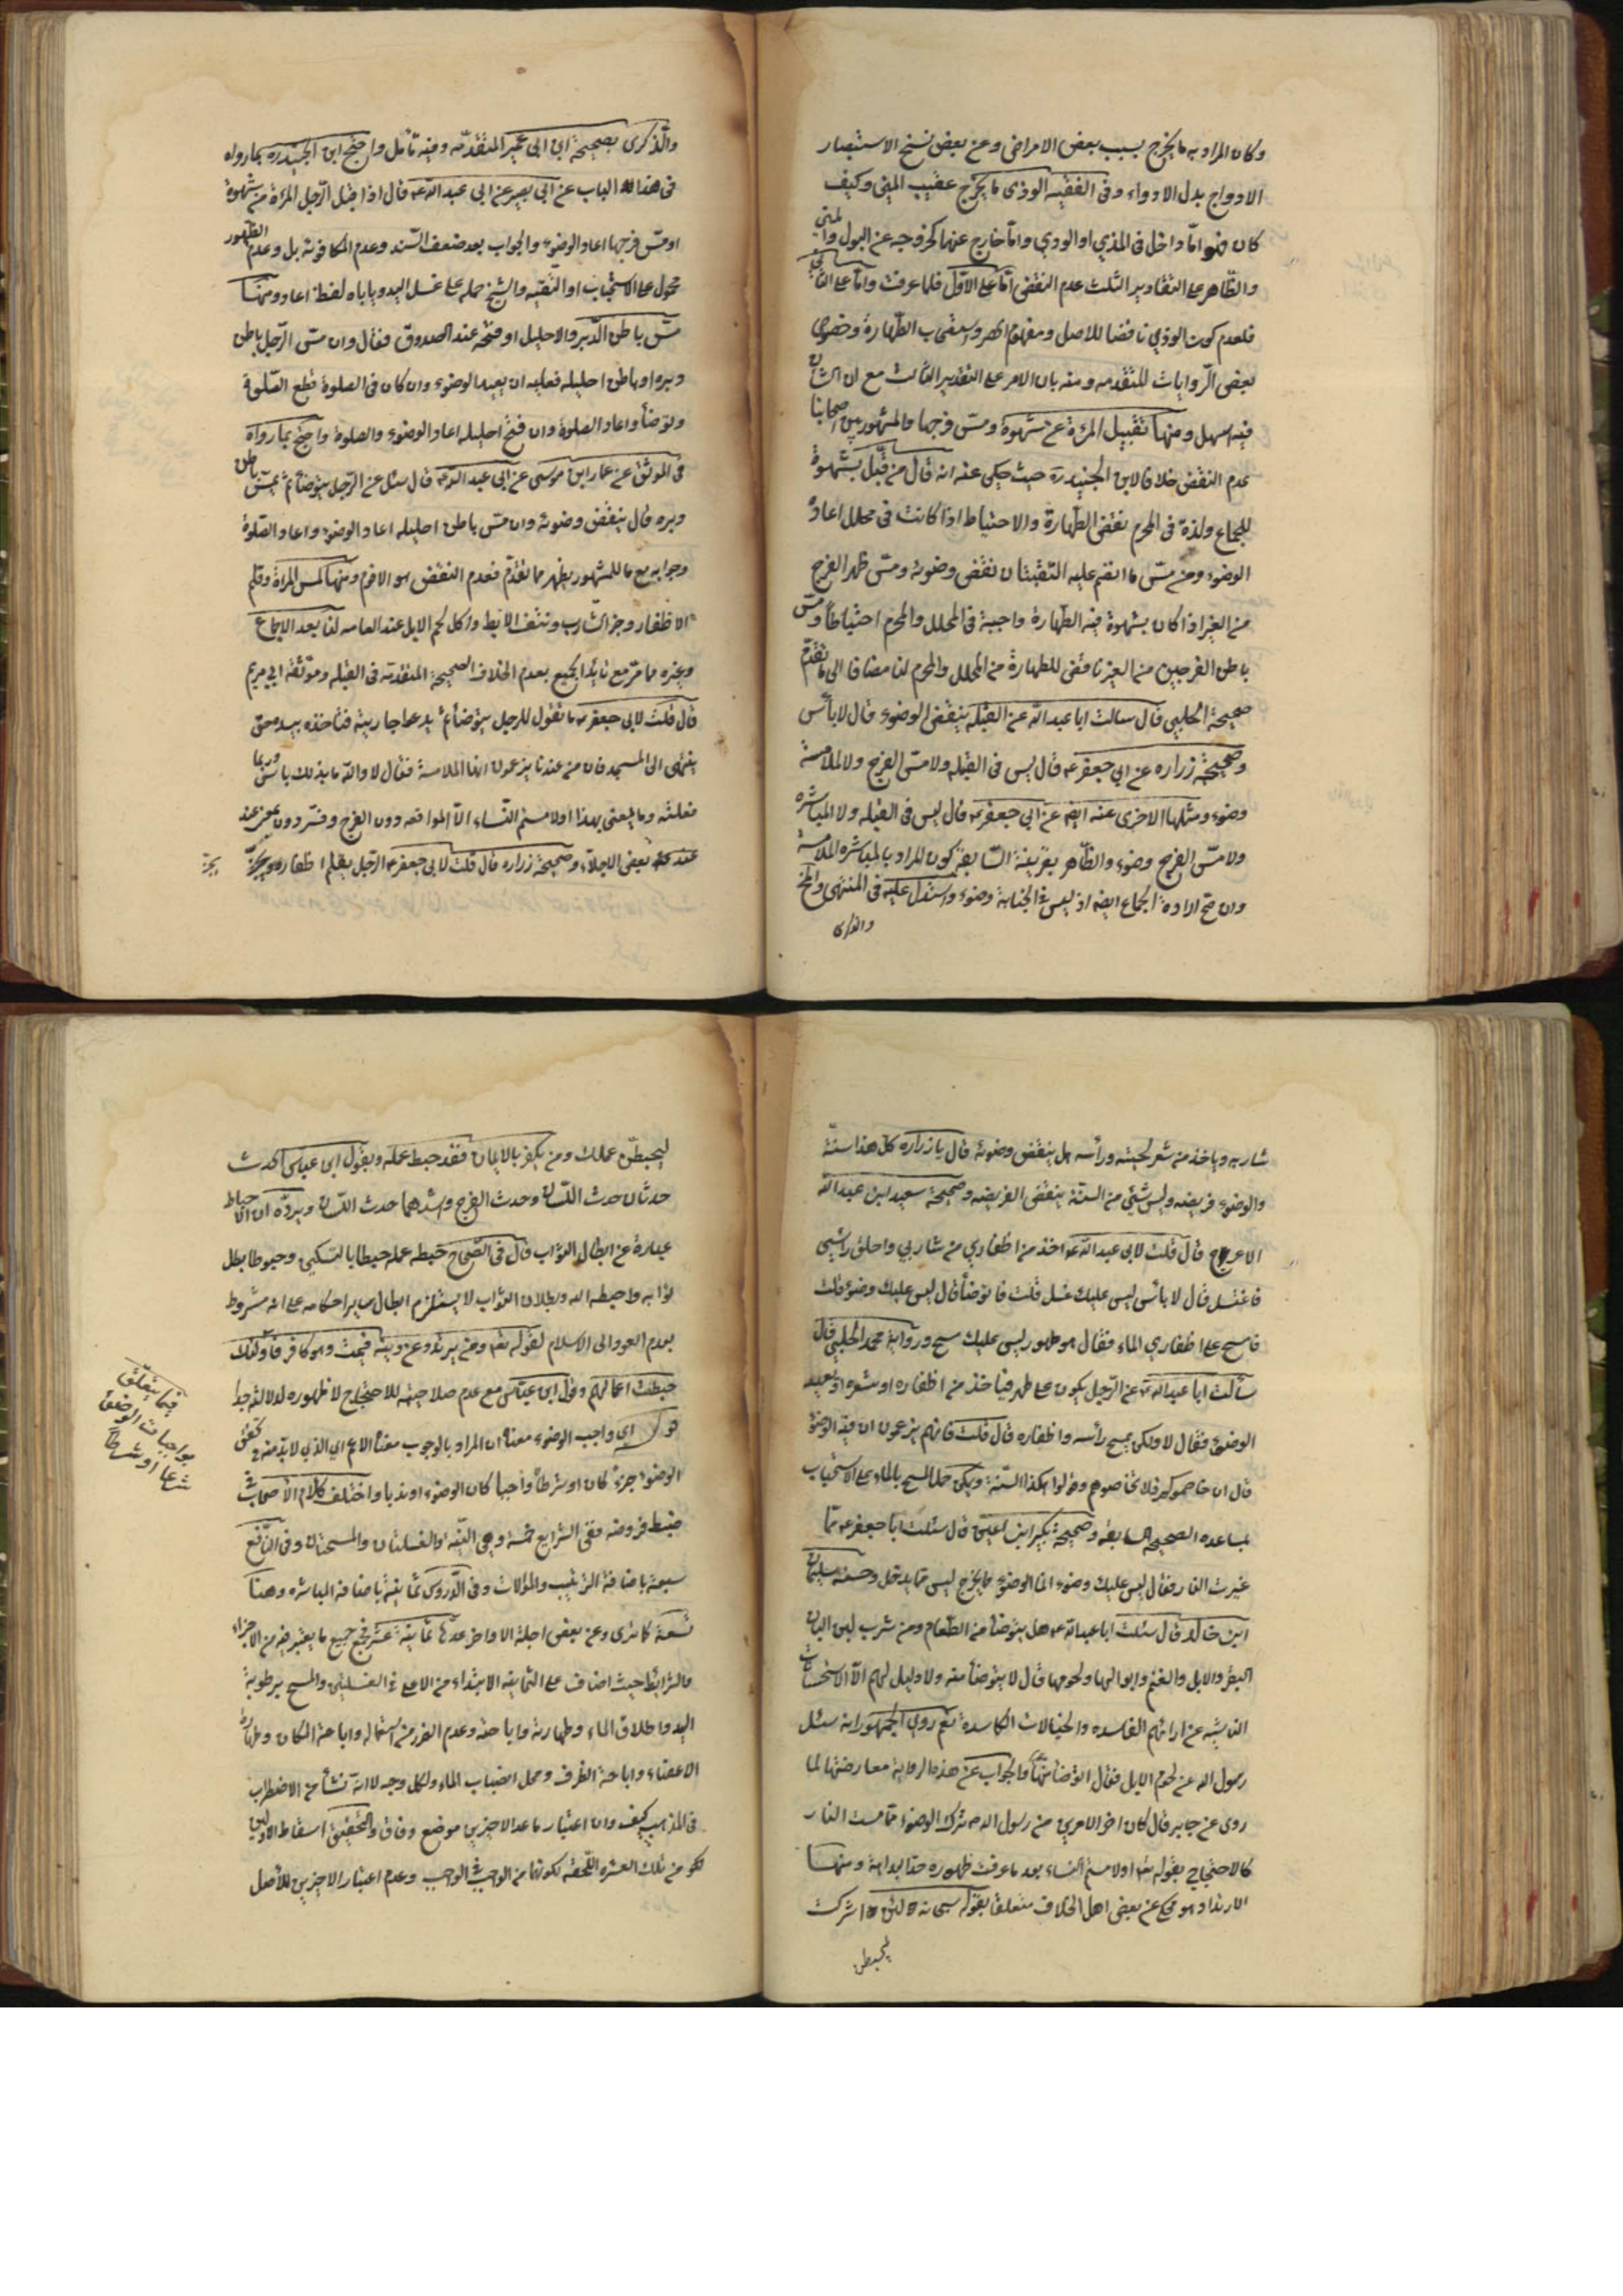 وكان المراد به ما يخرج بسبب بعض الامراض وعن بعض نسخ الاستبصار
الادواج بدل الادواء وفى الفقيه الوذى ما يخرج عقيب المنى وكيف
كان فهو امّا داخل فى المذي او الودي وامّا خارج عنهما كخروجه عن البول والمني
والظّاهر على التقادير الثلث عدم النقض امّا على الاوّل فلما عرفت وامّا على الثاني
فلعدم كون الوذي ناقضا للاصل ومفهوم الحصر واستصحاب الطّهارة وخصوص
بعض الرّوايات المتقدمه ومنه بان الامر على التقدير الثالث مع ان الشان
فيه اسهل ومنها تقبيل المرءة عن شهوة ومسّ فرجها والمشهور بين اصحابنا
عدم النقض خلافا لابن الجنيد ره حيث حكى عنه انه قال من قبّل بشهوة
للجماع ولذة فى المحرم نقض الطّهارة والاحتياط اذا كانت فى محلل اعادة
الوضوء ومن مسّ ما انضم عليه الثقبتان نقض وضوئه ومسّ ظهر الفرج
من الغير اذا كان بشهوة فيه الطّهارة واجبة فى المحلل والمحرم احتياطا ومسّ
باطن الفرجين من الغير ناقض للطهارة من المحلل والمحرم لنا مضافا الى ما تقدّم
صحيحة الحلبي قال سالت ابا عبد الله عن القبله ينقض الوضوء قال لا باس
وصحيحة زراره عن ابي جعفر ع قال ليس فى القبله ولا مسّ الفرج ولا الملامسة
وضوء ومثلها الاخرى عنه ايضا عن ابى جعفر ع قال ليس فى القبله ولا المباشره
ولا مسّ الفرج وضوء والظّاهر بقرينة السّابقة كون المراد بالمباشره الملامسة
وان صح ارادة الجماع ايضا اذ ليس فى الجنابة وضوء واستدل عليه فى المنتهى والمخ
والذكرى
والذّكرى بصحيحة ابن ابى عمير المتقدّمه وفيه تامّل واحتج ابن الجنيد ره بما رواه
فى هذا الباب عن ابى بصير عن ابى عبد الله ع قال اذا قبّل الرّجل المرءة من شهوة
او مسّ فرجها اعاد الوضوء والجواب بعد ضعف السّند وعدم المكافؤته بل وعدم الظهور
محمول على الاستحباب او التقيّه والشيخ حمله على غسل اليد وياباه لفظ اعاد ومنها
مسّ باطن الدّبر والاحليل او فتحه عند الصدوق فقال وان مسّ الرّجل باطن
دبره او باطن احليله فعليه ان يعيد الوضوء وان كان فى الصلوة قطع الصّلوة
وتوضأ واعاد الصلوة وان فتح احليله اعاد الوضوء والصلوة واحتج بما رواه
فى الموثق عن عمار ابن موسى عن ابى عبد الله ع قال سئل عن الرّجل يتوضأ ثم يمسّ باطن
دبره قال ينقض وضوئه وان مسّ باطن احليله اعاد الوضوء واعاد الصّلوة
وجوابه مع ما للمشهور يظهر مما تقدّم فعدم النقض هو الاقوم ومنها لمس المراة وقلم
الاظفار وجز الشّارب ونتف الابط واكل لحم الابل عند العامه لنا بعد الاجماع
وغيره مما مرّ مع تايّدا لجميع بعدم الخلاف الصحيحة المتقدّمة فى القبله وموثقة ابي مريم
قال قلت لابى جعفر ع ما تقول للرجل يتوضأ ثم يدعوا جاريته فتاخذه بيده حتى
ينتهى الى المسجد فان من عندنا يزعمون انها الملامسة فقال لا والله ما بذلك باس وربما
فعلته وما يعنى بهذا او لامستم النّساء الّا المواقعه دون الفرج وفسّر دون بمعنى عند
عند بعض الاجلاّء وصحيحة زراره قال قلت لابى جعفر ع الرّجل يقلّم اظفاره ويجزّ
يجزّ
شاربه وياخذ من شعر لحيته ورأسه هل ينقض وضوئه قال يا زراره كلّ هذا سنّة
والوضوء فريضه وليس شيئ من السنّة ينقض الفريضه وصحيحة سعيد ابن عبد الله
الاعرج قال قلت لابى عبد الله ع اخذ من اظفاري من شاربي واحلق راسي
فاغتسل قال لا بأس ليس عليك غسل قلت فاتوضأ قال ليس عليك وضوء قلت
فامسح على اظفاري الماء فقال هو طهور ليس عليك مسح ورواية محمد الحلبي قال
سألت ابا عبد الله ع عن الرّجل يكون على طهر فياخذ من اظفاره او شعره ايعيد
الوضوء فقال لا ولكن يمسح رأسه واظفاره قال قلت فانهم يزعمون ان فيه الوضوء
قال ان خاصموكم فلا تخاصموهم وقولوا هكذا السّنة ويمكن حمل المسح بالماء على الاستحباب
لمساعده الصحيحه السابقه وصحيحة بكير ابن اعين قال سئلت ابا جعفر ع عما
غيرت النار فقال ليس عليك وضوء انما الوضوء مما يخرج ليس مما يدخل وحسنه سليمان
ابن خالد قال سئلت ابا عبد الله ع هل يتوضأ من الطّعام ومن شرب لبن البان
البقر والابل والغنم وابوالها ولحومها قال لا يتوضأ منه ولا دليل لهم الّا الاستحسانات
الناشيه عن ارائهم الفاسده والخيالات الكاسدة نعم روى الجمهور انه سئل
رسول الله عن لحوم الابل فقال اتوضأ منها والجواب عن هذه الرواية معارضتها لما
روى عن جابر قال كان اخر الامرين من رسول الله ص ترك الوضوء مما مست النار
كالاحتجاج بقوله تعا او لامستم النساء بعد ما عرفت ظهوره حقا بداهة ومنها
الارتداد وهو محكى عن بعض اهل الخلاف متعلقا بقوله سبحانه لئن اشركت
ليحبطن
ليحبطنّ عملك ومن يكفر بالايمان فقد حبط عمله وبقول ابن عباس الحدث
حدثان حدث اللّسان وحدث الفرج واشدهما حدث اللّسان ويردّه ان الاحباط
عبارة عن ابطال الثّواب قال فى الصّحاح حبطه عمله حبطا بالتسكين وحبوطا بطل
ثوابه واحبطه الله وبطلان الثواب لا يستلزم ابطال ساير احكامه على انه مشروط
بعدم العود الى الاسلام لقوله تعا ومن يرتدد عن دينه فيمت وهو كافر فاولئك
حبطت اعمالهم وقول ابن عبّاس مع عدم صلاحيته للاحتجاج لا ظهوره له لدلالته جدا
اي واجب الوضوء معناه ان المراد بالوجوب معناه الاعم اي الذي لا بد منه فى تحقق
الوضوء جزء كان او شرطا واجبا كان الوضوء او ندبا واختلف كلام الاصحاب فى
ضبط فروضه ففى الشرايع خمسة وهى النيّه والغسلتان والمسحتان وفى النّافع
سبعة باضافة الترتيب والموالات وفى الدّروس ثمانية باضافة المباشره وهنا
تسعة كما ترى وعن بعض اجلة الاواخر عدّها ثمانية عشر فجمع جميع ما يعتبر فيه من الاجزاء
والشرائط حيث اضاف على الثمانيه الابتداء من الاعلى فى الغسلتين والمسح برطوبة
اليد واطلاق الماء وطهارته واباحته وعدم الضرر من استعماله واباحة المكان وطهارة
الاعضاء واباحة الظرف ومحل انصباب الماء ولكل وجه لا انه نشأ من الاضطراب
فى المذهب كيف وان اعتبار ما عدا الاخيرين موضع وفاق والتحقيق اسقاط الاولين
من تلك العشره اللّاحقه لكونها من الواجب فى الواجب وعدم اعتبار الاخيرين للأصل
فيما يتعلّق
بواجبات الوضوء